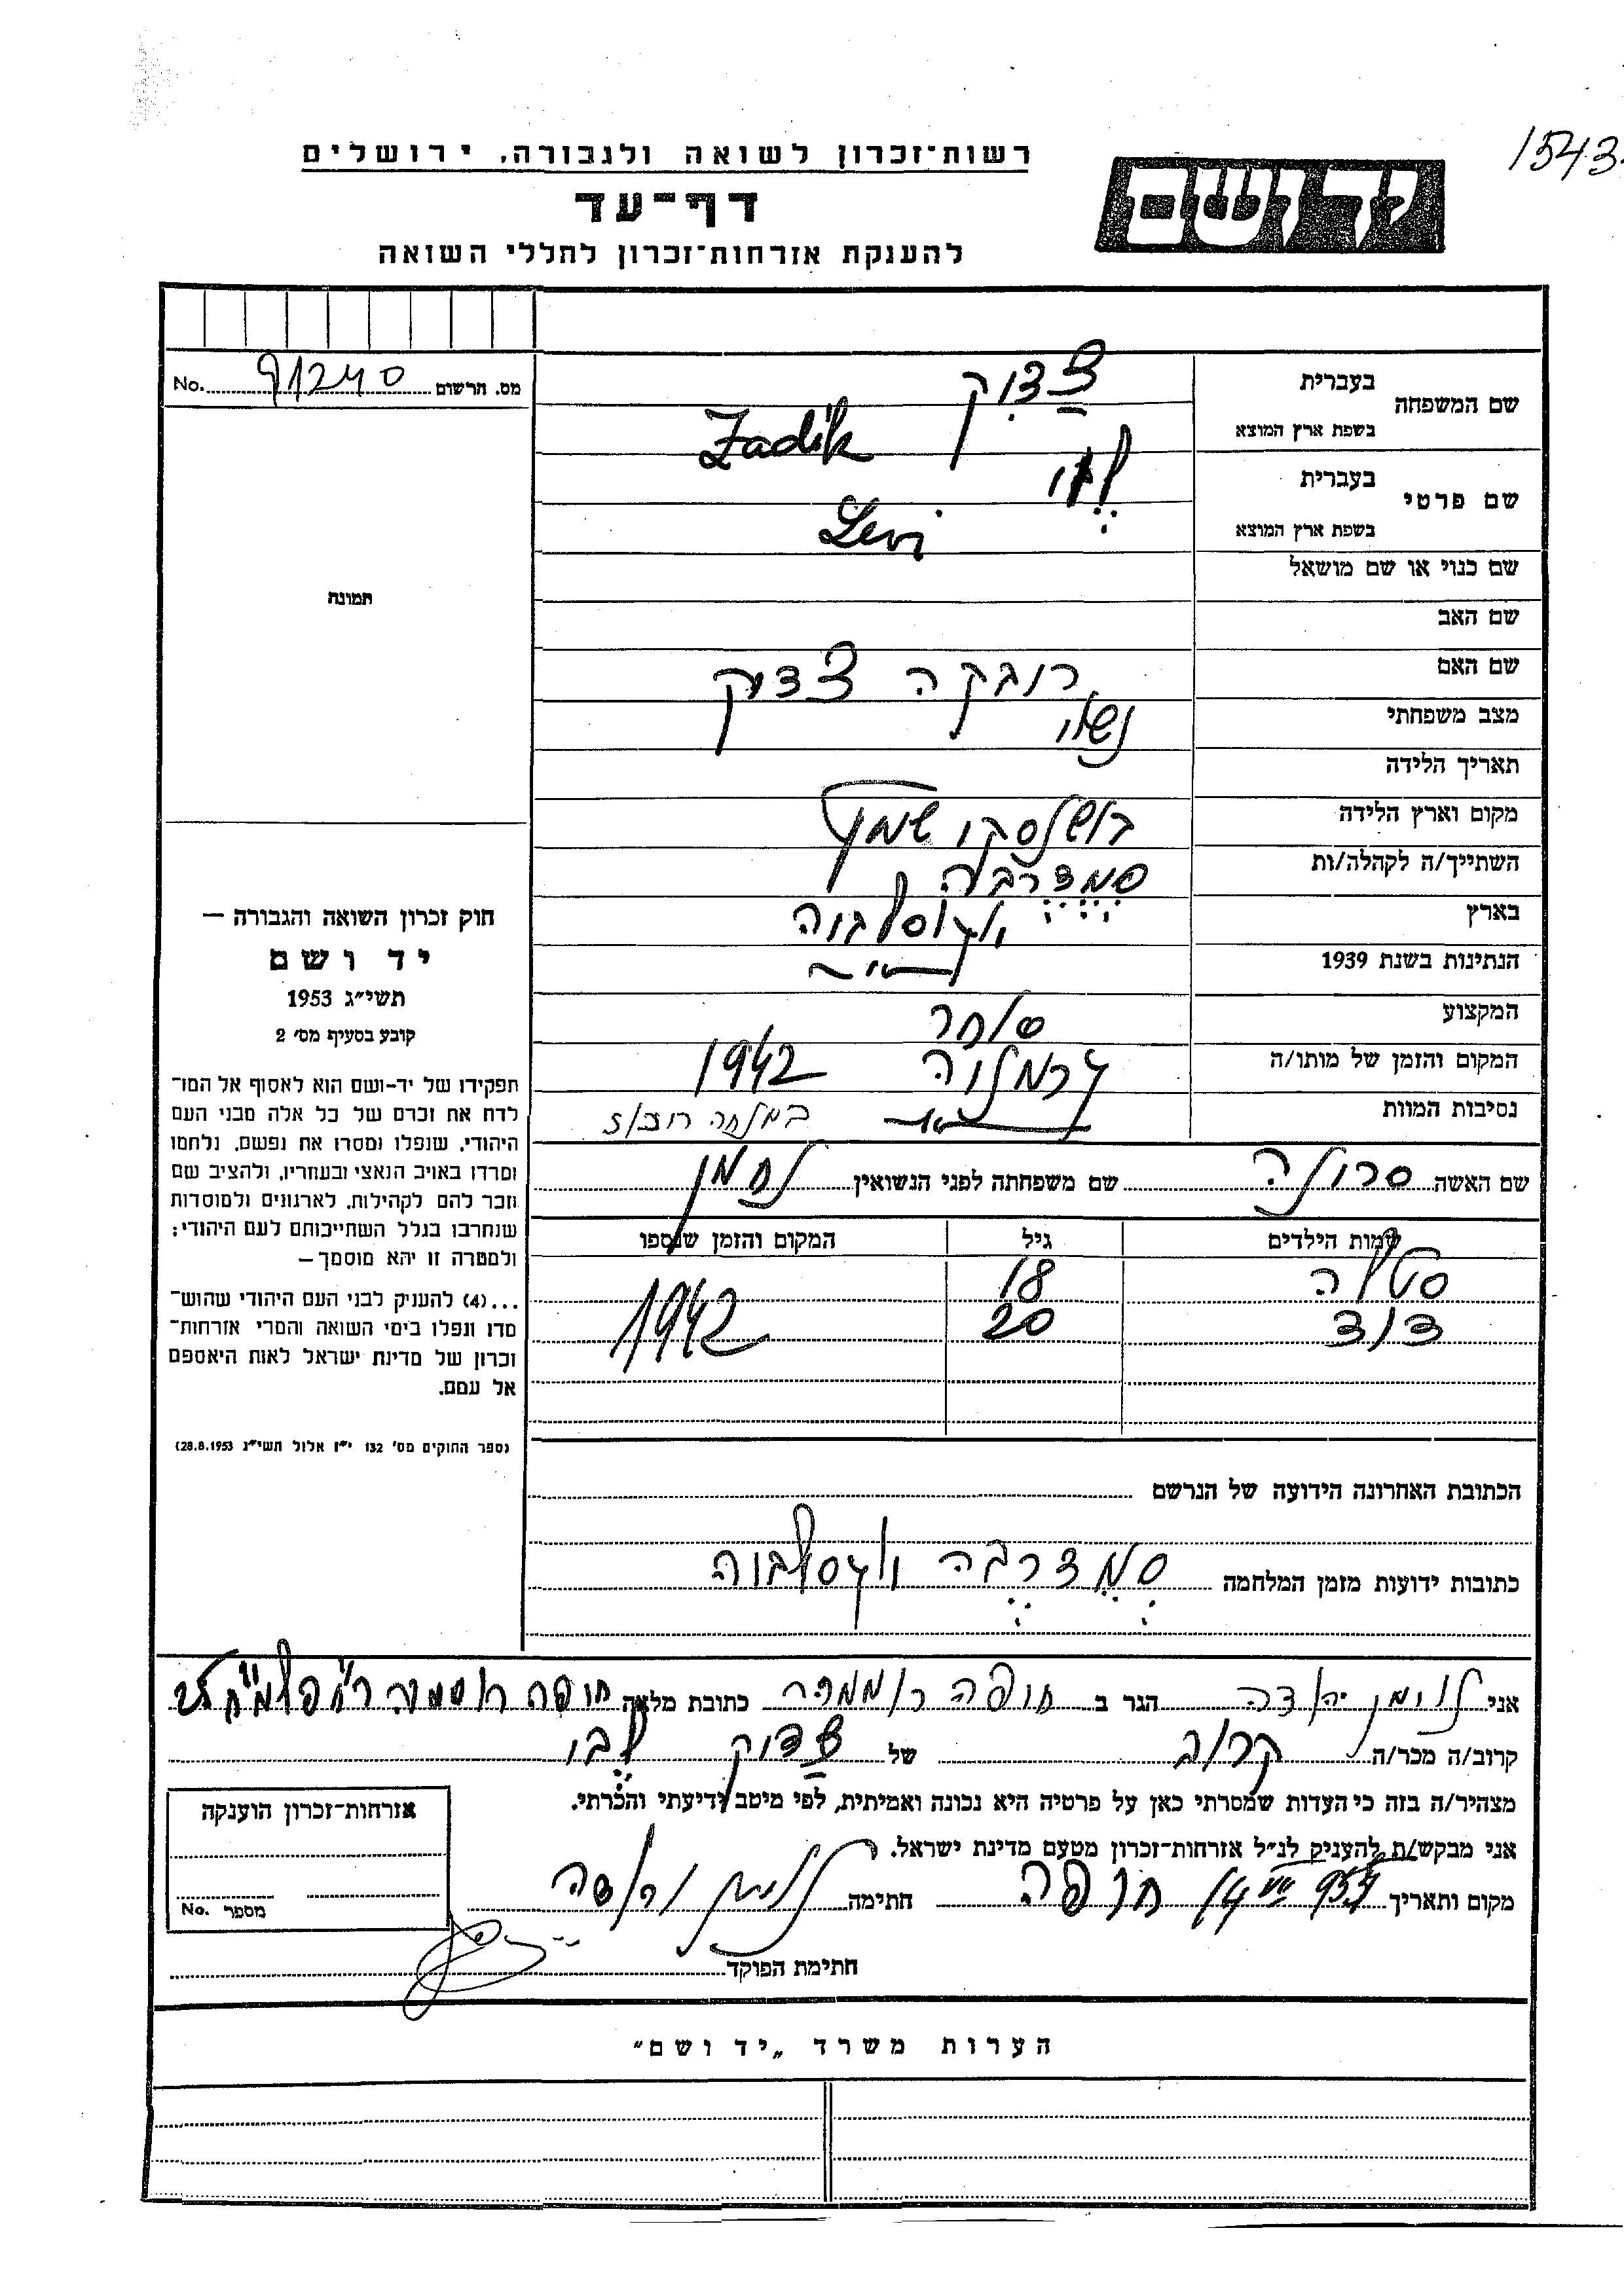 1543
רשות־זכרון לשואה ולגבורה, ירושלים
יד ושם
דף־עד
להענקת אזרחות־זכרון לחללי השואה
מס. הרשום No. 91240
תמונה
שם המשפחה
בעברית צדיק
בשפת ארץ המוצא Zadik
שם פרטי
בעברית לוי
בשפת ארץ המוצא Levi
שם כנוי או שם מושאל
שם האב
שם האם רובקה צדיק
מצב משפחתי נשוי
תאריך הלידה
מקום וארץ הלידה
השתייך/ה לקהלה/ות
בארץ יוגוסלביה
הנתינות בשנת 1939
המקצוע סוחר
המקום והזמן של מותו/ה 1942
נסיבות המוות
שם האשה שם משפחתה לפני הנשואין נחמן
שמות הילדים גיל המקום והזמן שנספו
סטלה 18
דוד 20 1942
הכתובת האחרונה הידועה של הנרשם
כתובות ידועות מזמן המלחמה
חוק זכרון השואה והגבורה —
יד ושם
תשי״ג 1953
קובע בסעיף מס׳ 2
תפקידו של יד-ושם הוא לאסוף אל המו־
לדת את זכרם של כל אלה מבני העם
היהודי, שנפלו ומסרו את נפשם, נלחמו
ומרדו באויב הנאצי ובעוזריו, ולהציב שם
וזכר להם לקהילות, לארגונים ולמוסדות
שנחרבו בגלל השתייכותם לעם היהודי;
ולמטרה זו יהא מוסמך—
...(4) להעניק לבני העם היהודי שהוש־
מדו ונפלו בימי השואה והמרי אזרחות־
זכרון של מדינת ישראל לאות היאספם
אל עמם.
(ספר החוקים מס׳ 132 י״ז אלול תשי״ג 28.8.1953)
אני יהודה הגר ב חיפה כתובת מלאה חיפה
קרוב/ה מכר/ה קרוב של צדיק לוי
מצהיר/ה בזה כי העדות שמסרתי כאן על פרטיה היא נכונה ואמיתית, לפי מיטב ידיעתי והכרתי.
אני מבקש/ת להעניק לנ״ל אזרחות־זכרון מטעם מדינת ישראל.
מקום ותאריך חיפה חתימה
חתימת הפוקד
אזרחות־זכרון הוענקה
מספר No.
הערות משרד „יד ושם”